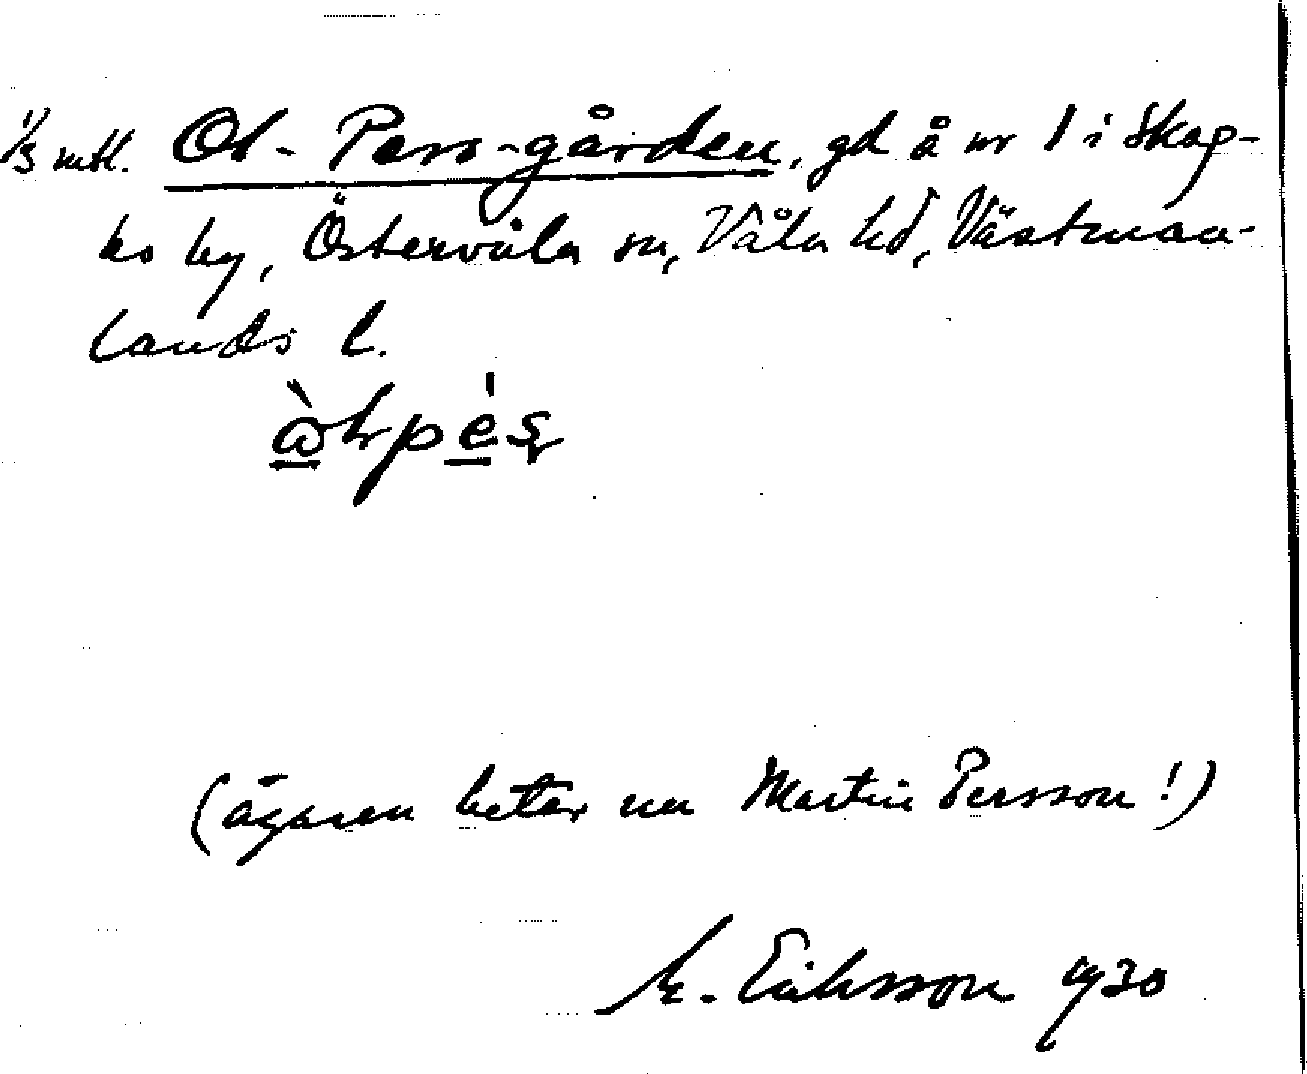 1/3 mtl. Ol-Pers-gården, gd å nr 1 i Skog-
bo by, Östervåla sn, Våla hd, Västman-
lands l.
(ägaren heter nu Martin Persson!)
M. Eriksson 1930